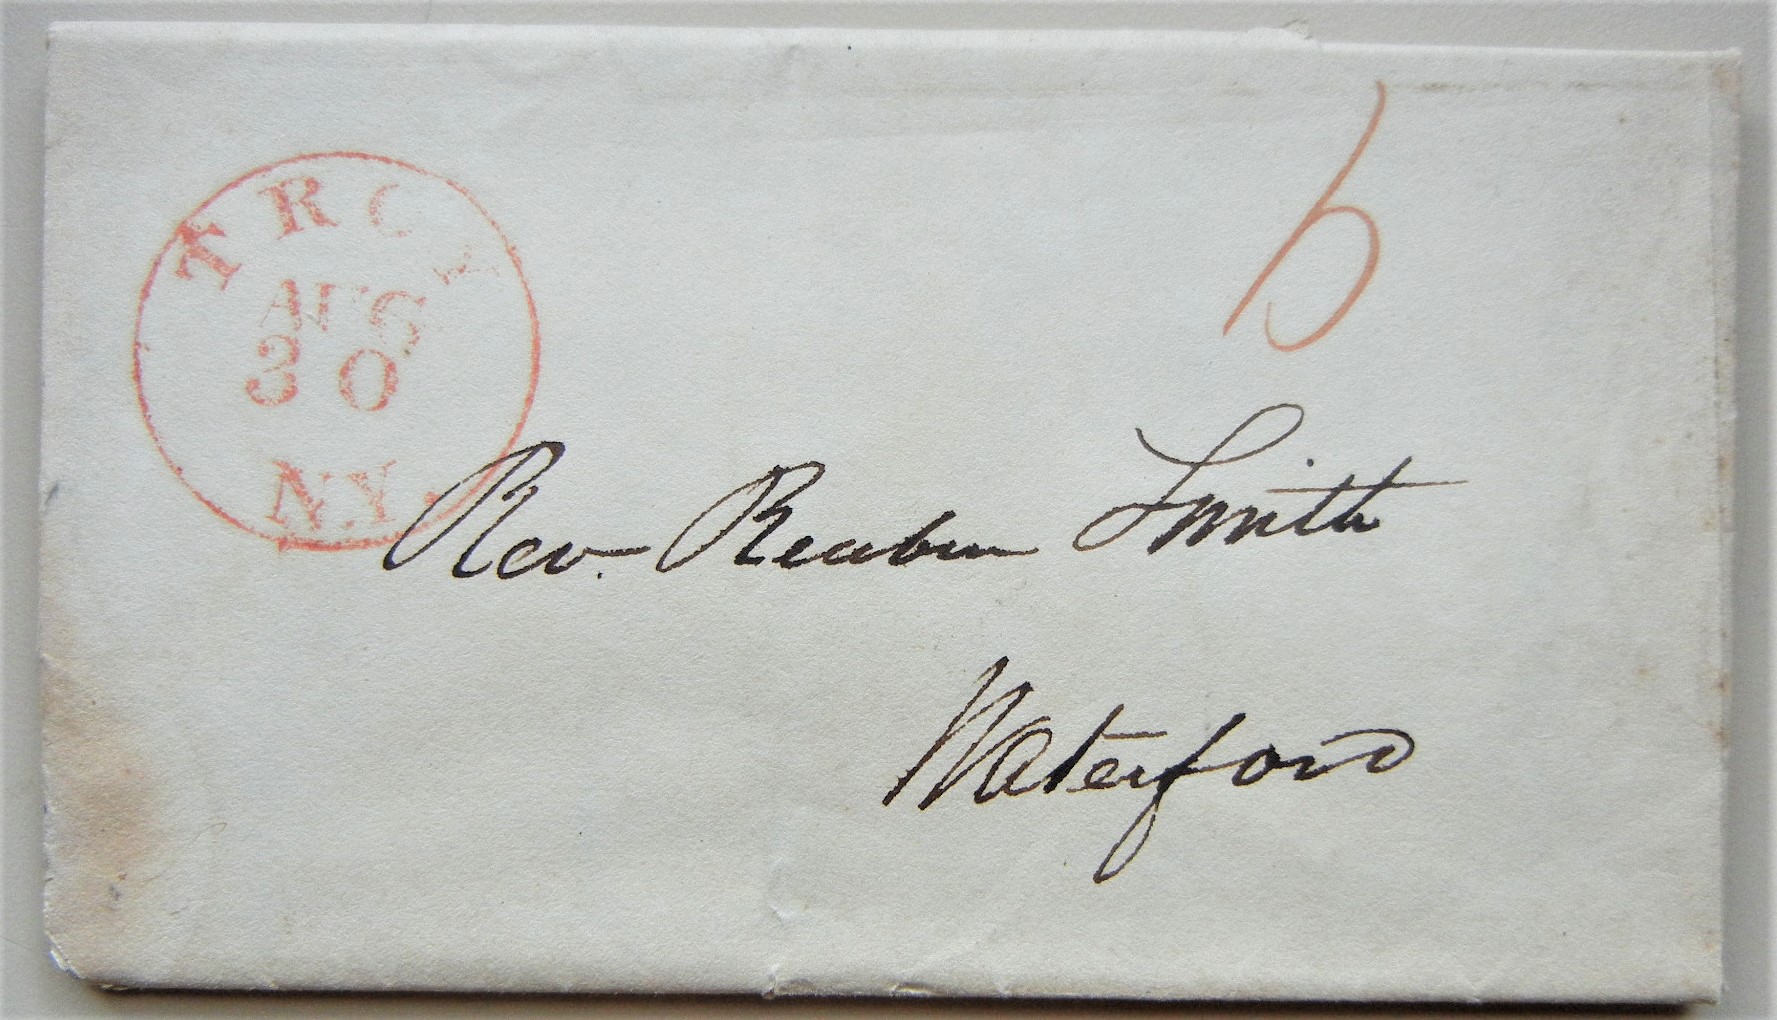 TROY
AUG
30
N.Y.
6
Rev. Reuben Smith
Waterford